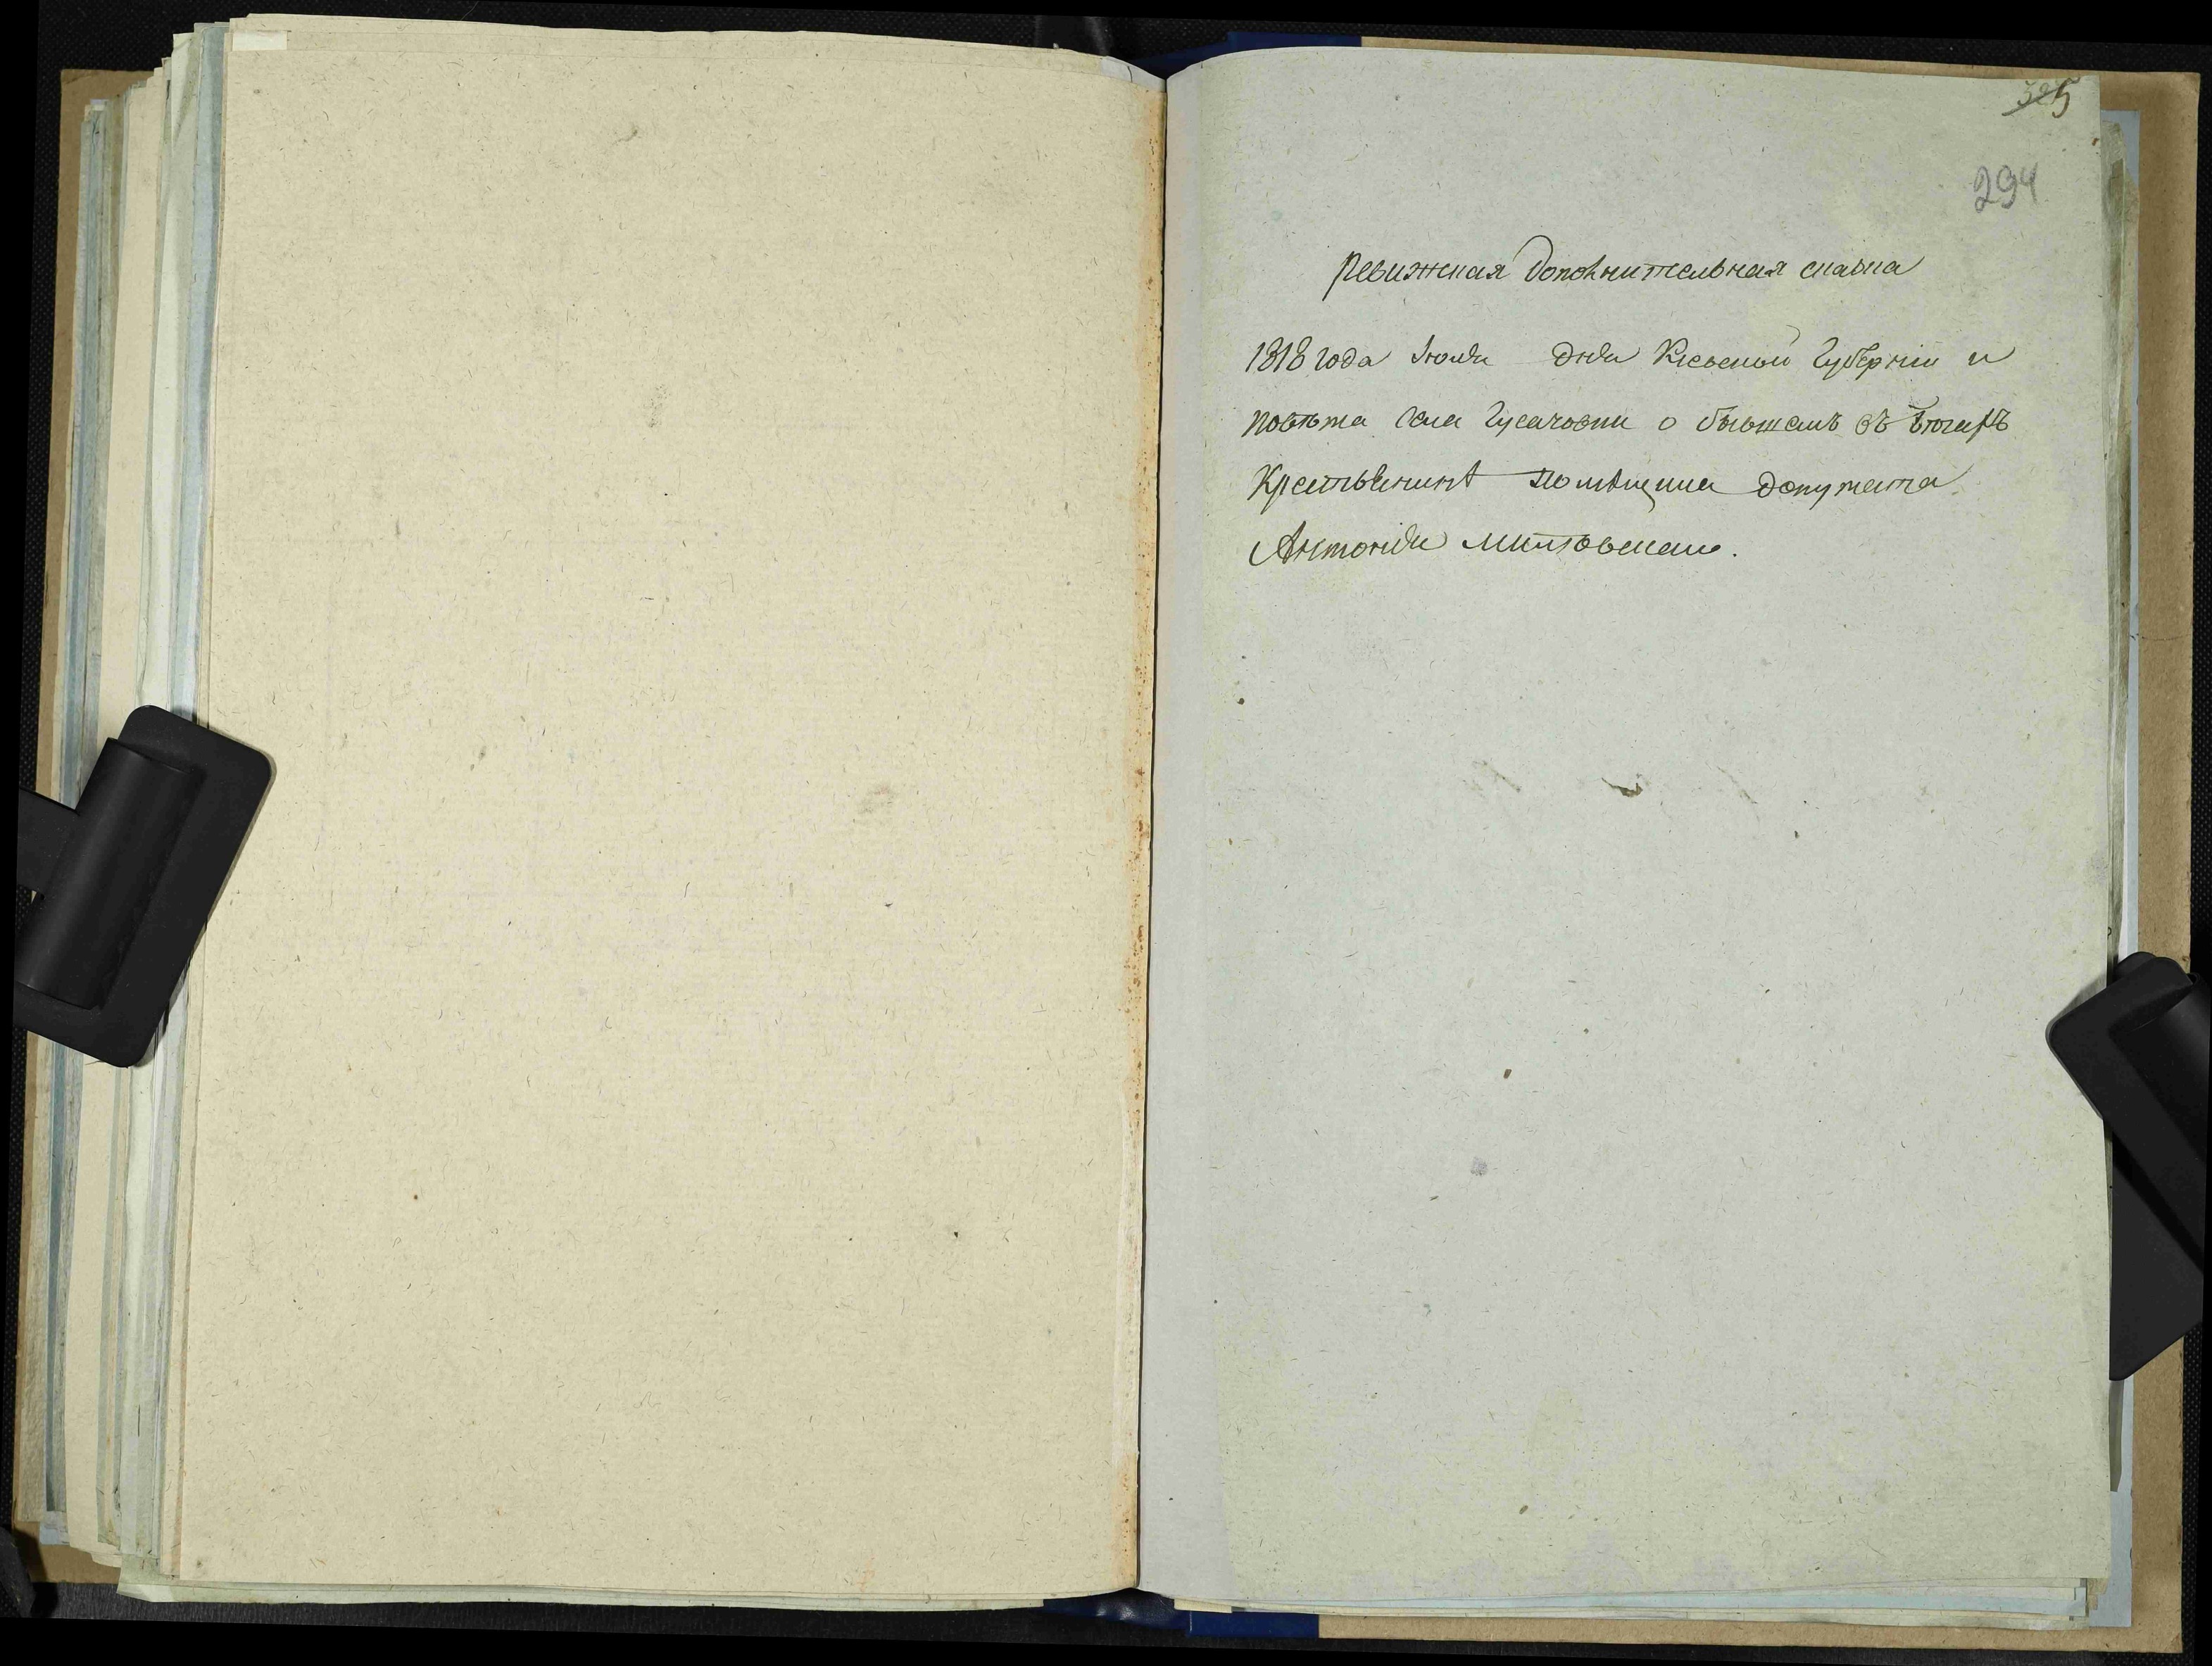 325
294
Ревижская дополнительная сказка
1818 года Июля дня Киевской Губернии и
повѣта села Гусачовки о бывшемъ въ бѣгахъ
Крестьянинѣ Помѣщика депутата
Антонія